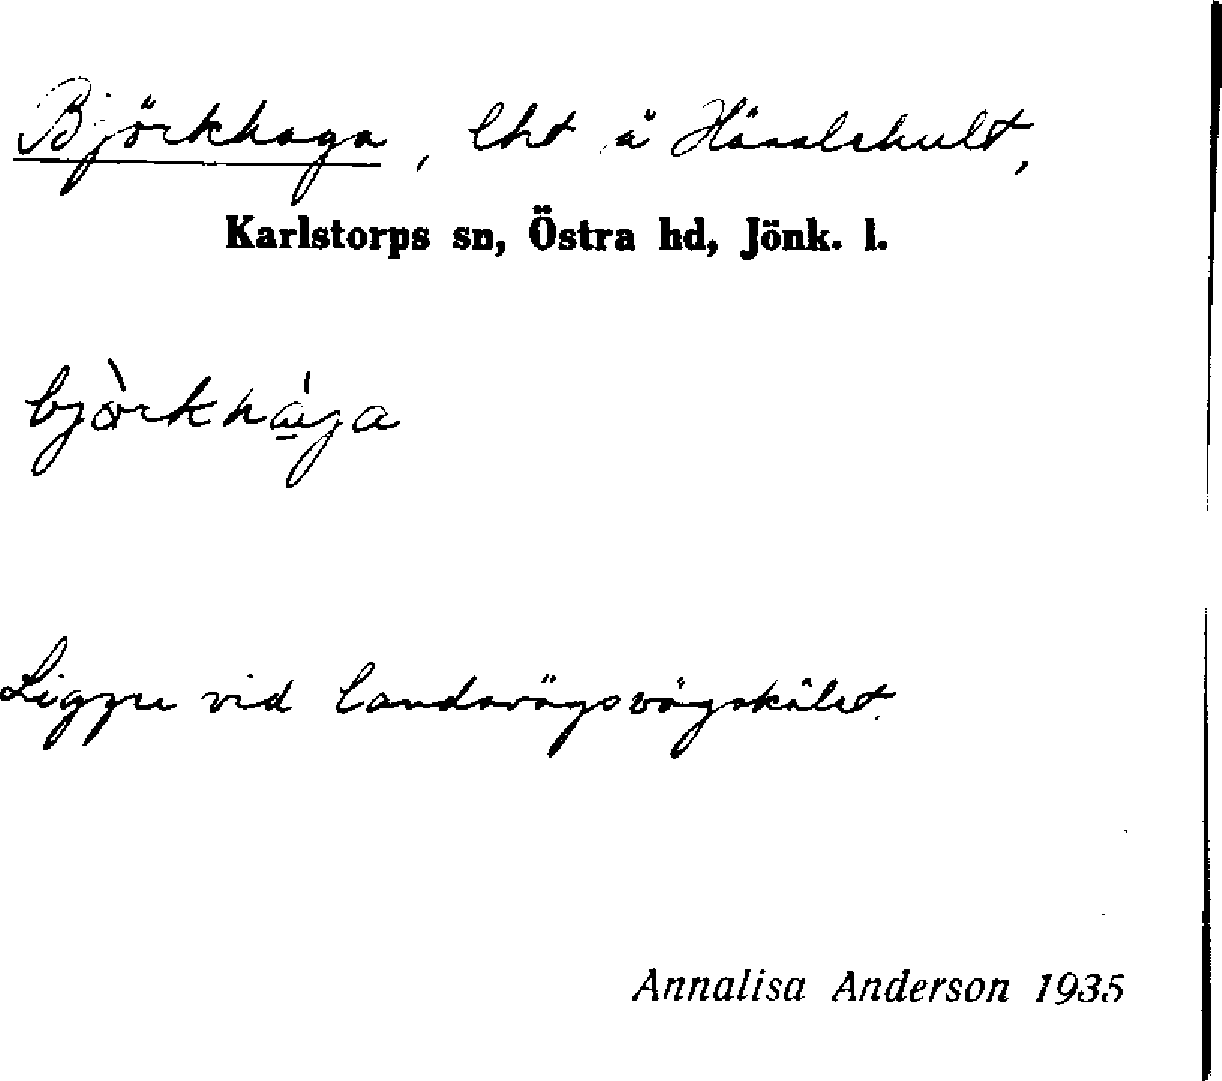 Björkhaga, lht å Håralshult,
Karlstorps sn, Östra hd, Jönk. l.
Ligger vid landsvägsvägskälet.
Annalisa Anderson 1935